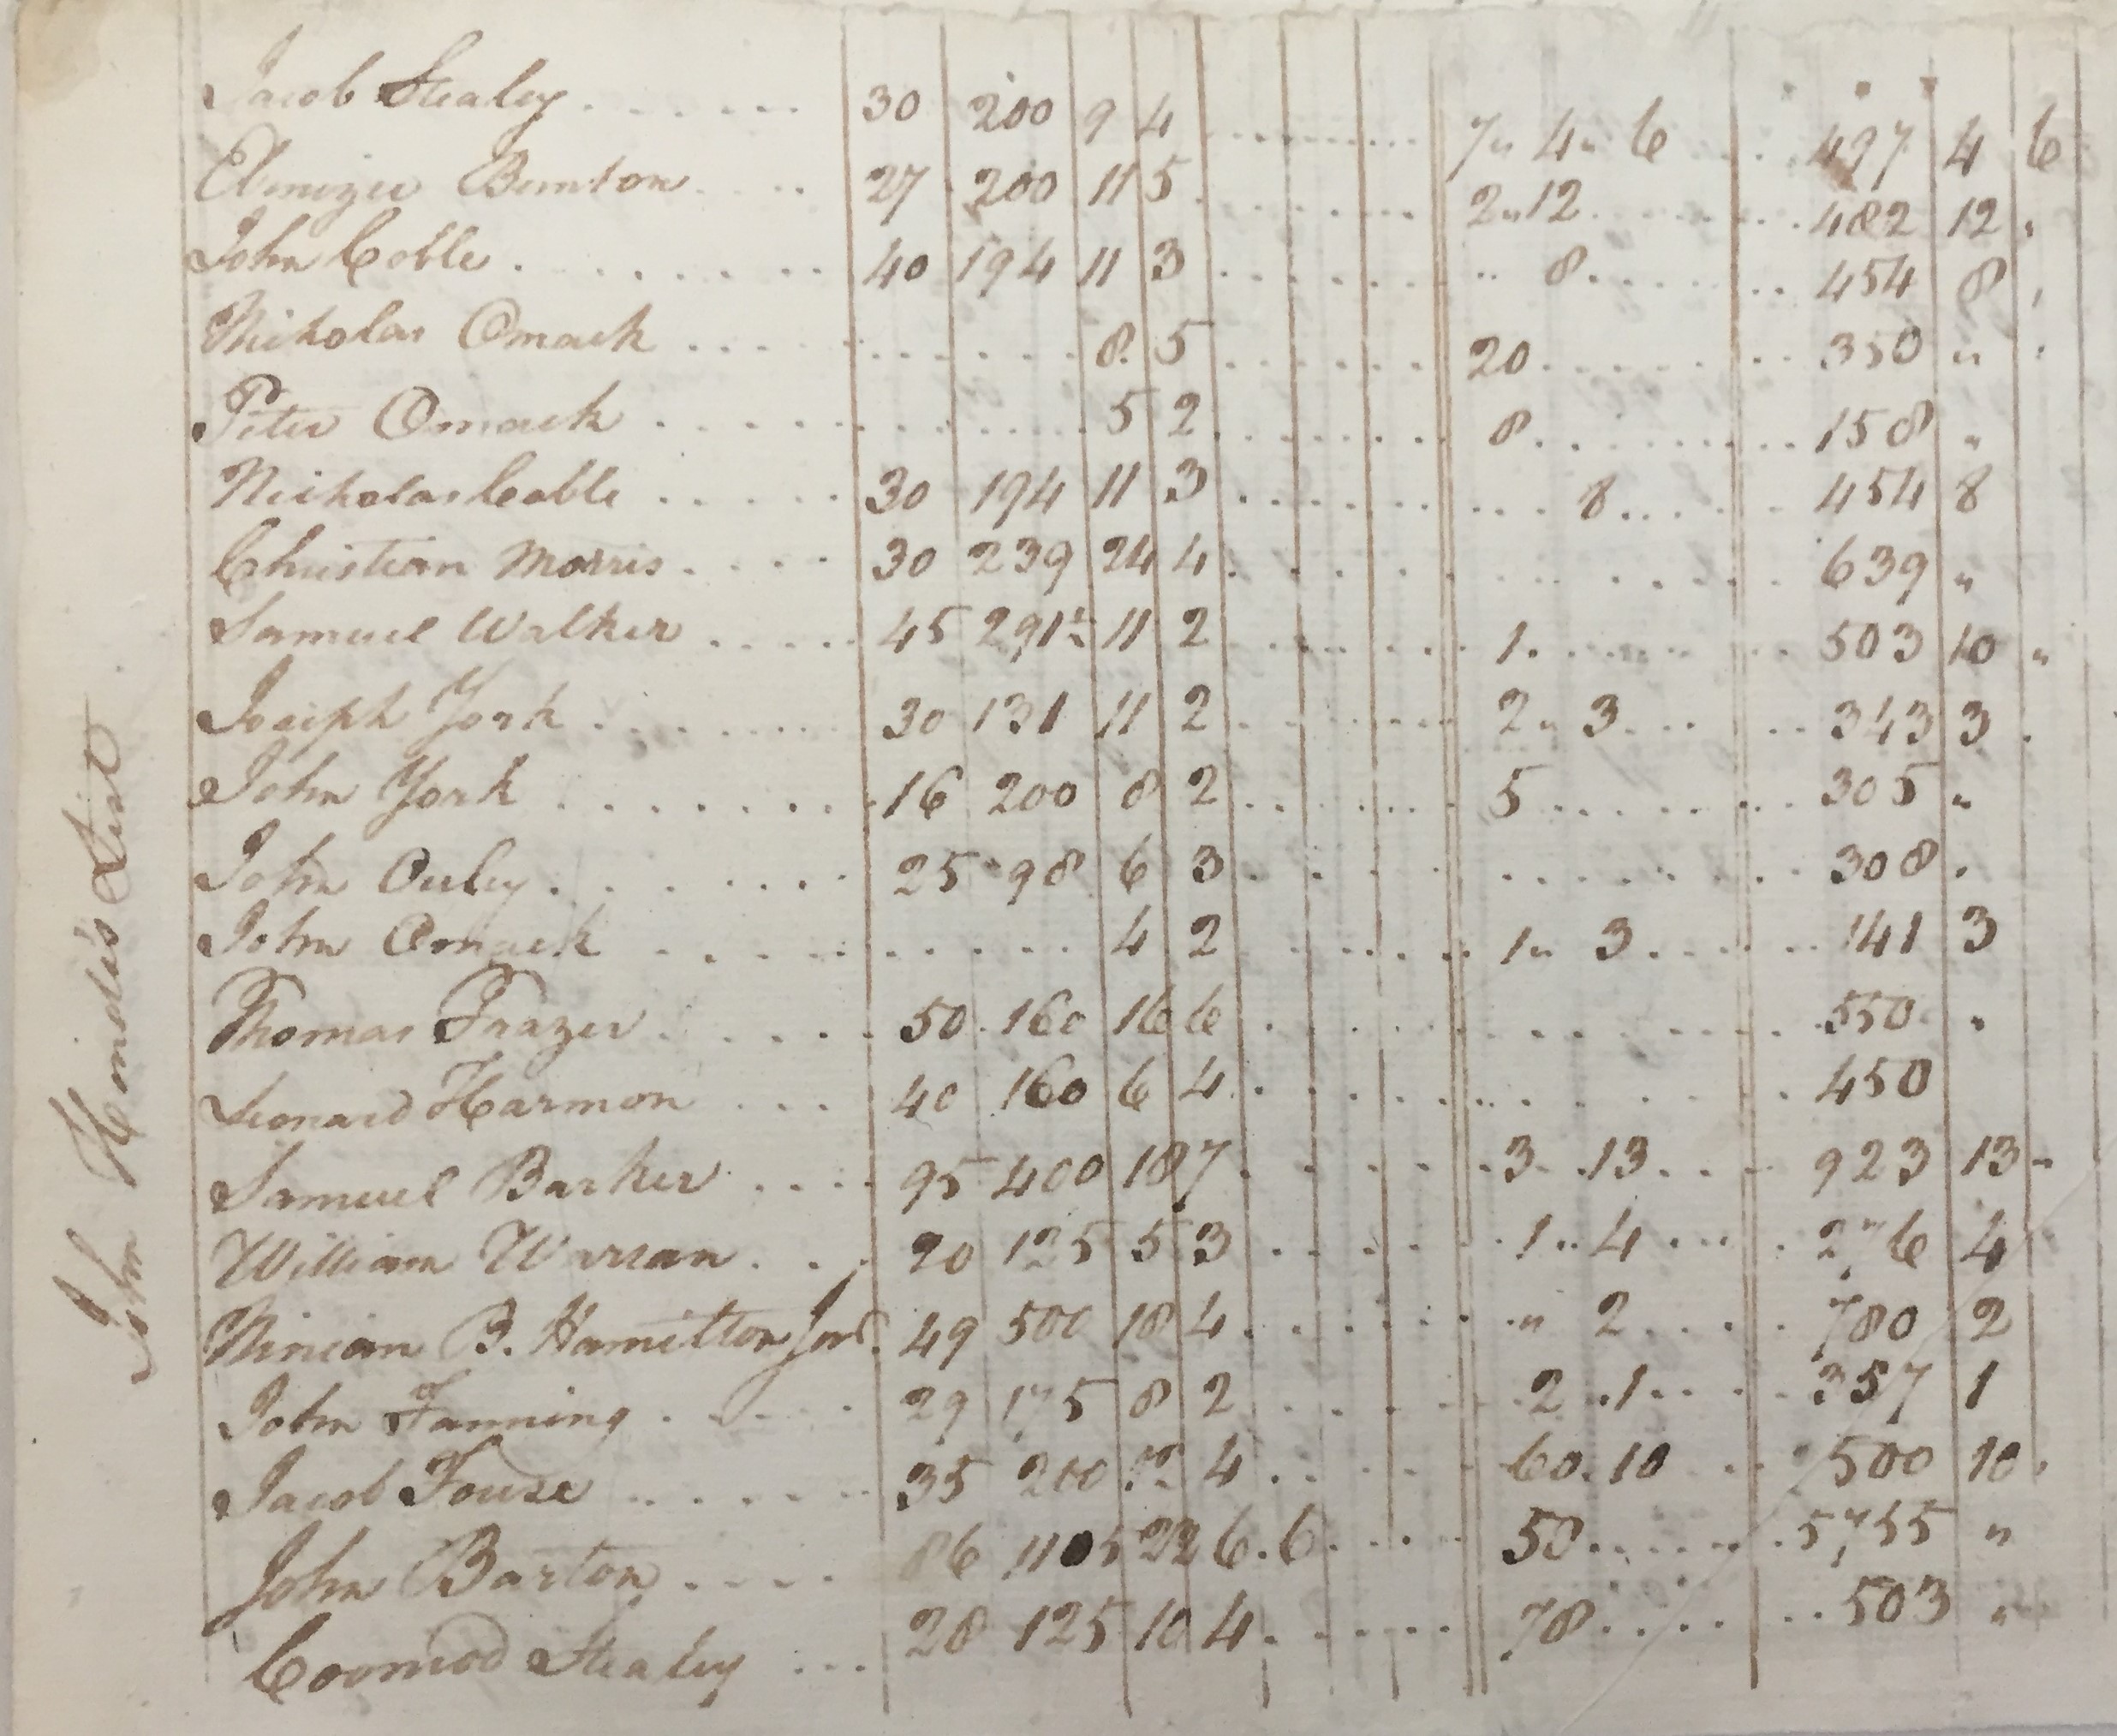 John Hornda's List
Jacob Stealey ...... 30 200 9 4 ........ 7 " 4 " 6 ... 497 4 6
Ebenezer Bunton .... 27 200 11 5 ....... 2 " 12 ...... 482 12 "
John Coble ........ 40 194 11 3 ....... " 8 ...... 454 8 "
Nicholas Omack ........ 8 5 ...... 20 ....... 350 " "
Peter Omack ........ 5 2 ....... 8 ........ 158 "
Nicholas Coble ..... 30 194 11 3 ........ 8 ..... 454 8
Christian Morris .... 30 239 24 4 ........ 639 "
Samuel Walker .... 45 291½ 11 2 ....... 1 ....... 503 10 "
Joseph York ....... 30 131 11 2 ....... 2 " 3 .... 343 3 .
John York ........ 16 200 8 2 ....... 5 ........ 305 "
John Ouley ....... 25 98 6 3 ........ 308 .
John Omack ........ 4 2 ..... 1 " 3 ..... 141 3
Thomas Frazer ..... 50 160 16 6 ........ 550 "
Leonard Harmon ... 40 160 6 4 ........ 450
Samuel Barker .... 95 400 18 7 ..... 3 .. 13 .... 923 13 -
William Warran ... 20 125 5 3 ..... 1 .. 4 .... 276 4
Ninian B. Hamilton Jonr. 49 500 18 4 ....... " 2 .... 780 2
John Fanning ..... 29 175 8 2 ..... 2 .. 1 .... 357 1
Jacob Fouse ...... 35 200 12 4 ..... 60 .. 10 ... 500 10 .
John Barton .... 86 1105 22 6 . 6 .... 50 ....... 5755 "
Coonrod Stealey ... 28 125 10 4 ...... 78 ..... 503 "